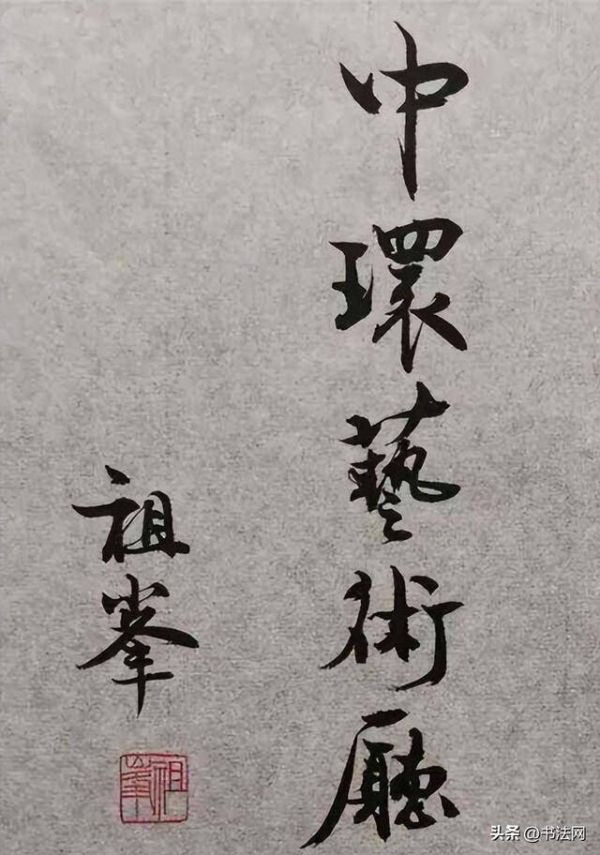 中環藝術廳
祖峯
祖峯
头条 @书法网